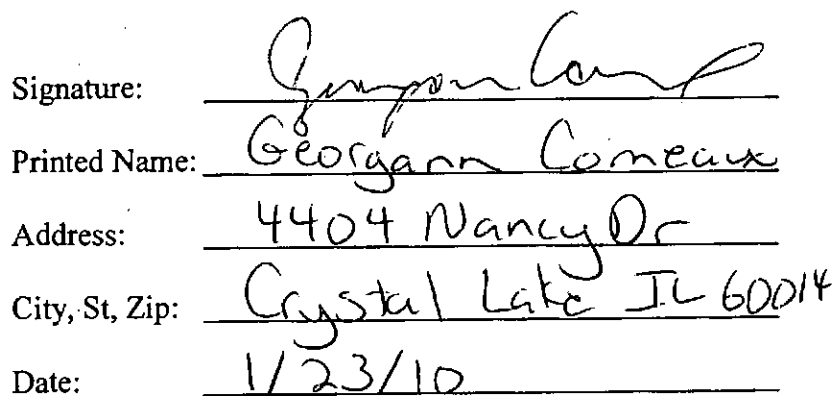 Signature:
Printed Name: Georgann Comeaux
Address: 4404 Nancy Dr
City, St, Zip: Crystal Lake IL 60014
Date: 1/23/10